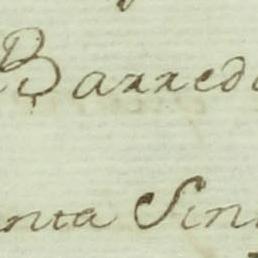 Barred
nta Sin